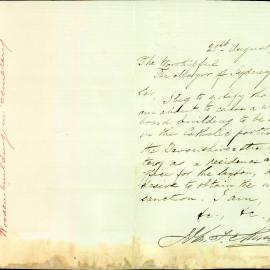 21st August
The Worshipful
The Mayor of Sydney
Sir
I beg to apply that
am about to cause a
board building to be
in the Catholic portion
the Devonshire Street
tery as a residence
fice for the sexton,
desire to obtain the
sanction. I am,
&c, &c,
Wooden building in Cemetery